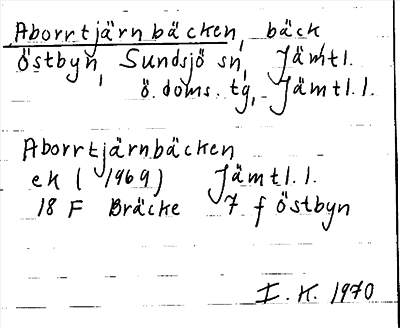 Aborrtjärnbäcken, bäck
Östbyn, Sundsjö sn, Jämtl.
ö. doms. tg, Jämtl. l.
Aborrtjärnbäcken
ek (1969) Jämtl. l.
18 F Bräcke 7 f Östbyn
I. K. 1970